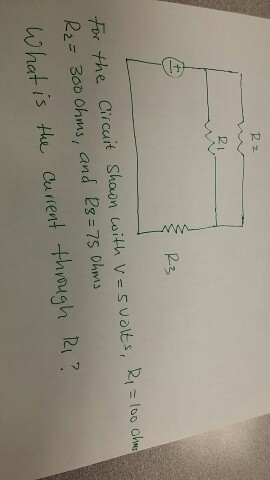 R2
R1
R3
±
For the Circuit Shown with V = 5 volts, R1 = 100 Ohms
R2 = 300 Ohms, and R3 = 75 Ohms
What is the current through R1?